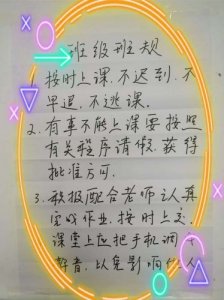 班级班规
按时上课，不迟到，不
早退，不逃课。
2、有事不能上课要按照
有关程序请假，获得
批准方可。
3、积极配合老师认真
完成作业，按时上交
课堂上应把手机调
静音，以免影响他人